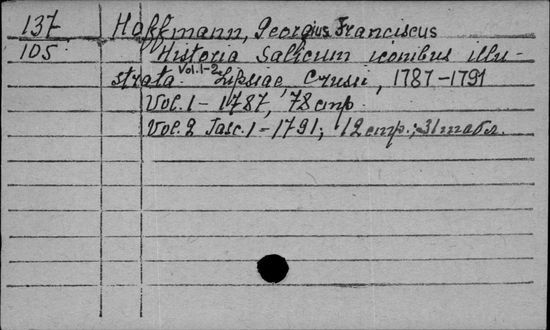 137 Hoffmann, Georgius Franciscus
105 Historia Salicum iconibus illu-
strata Vol.1-2 Lipsiae, Crusii, 1787-1791
Vol. 1 - 1787, 78 стр
Vol. 2 Fasc. 1 - 1791; 12 стр.; 31 табл.